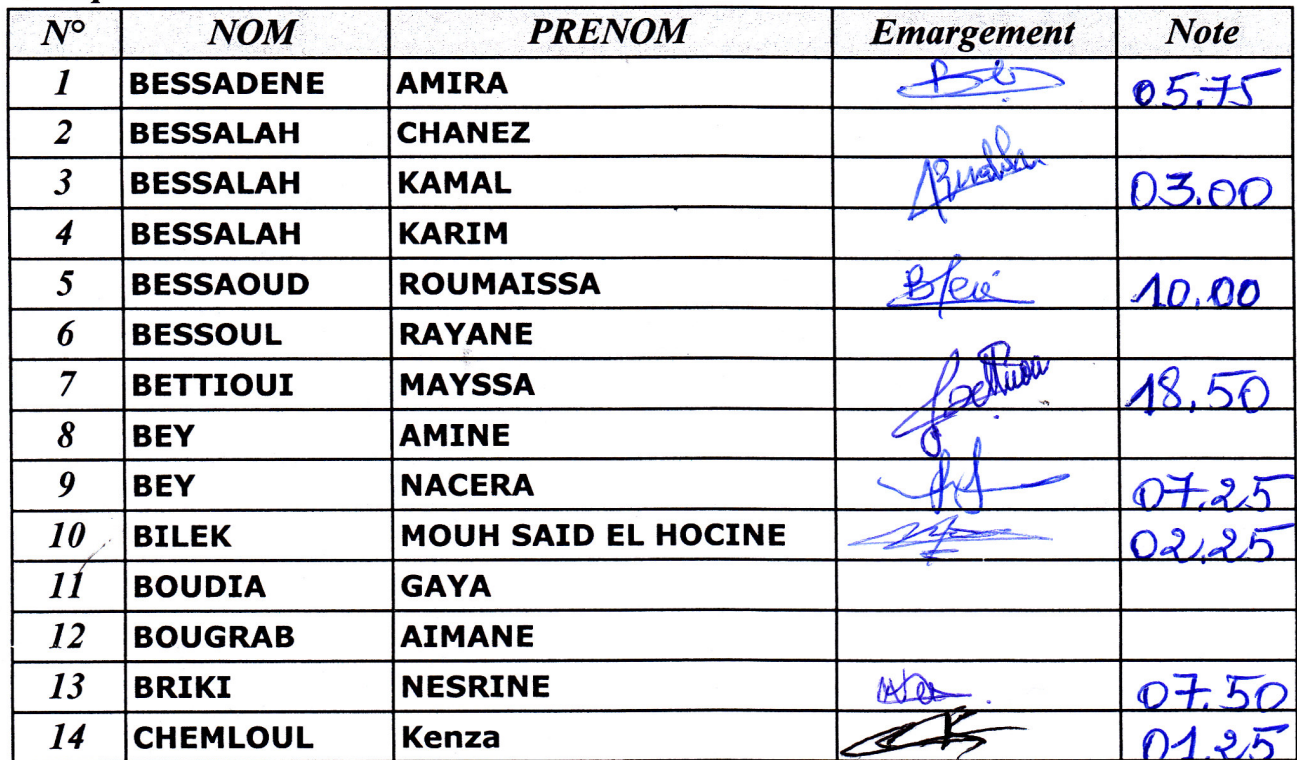 N° NOM PRENOM Emargement Note
1 BESSADENE AMIRA 05.75
2 BESSALAH CHANEZ
3 BESSALAH KAMAL 03.00
4 BESSALAH KARIM
5 BESSAOUD ROUMAISSA 10.00
6 BESSOUL RAYANE
7 BETTIOUI MAYSSA 18.50
8 BEY AMINE
9 BEY NACERA 07.25
10 BILEK MOUH SAID EL HOCINE 02.25
11 BOUDIA GAYA
12 BOUGRAB AIMANE
13 BRIKI NESRINE 07.50
14 CHEMLOUL Kenza 01.25